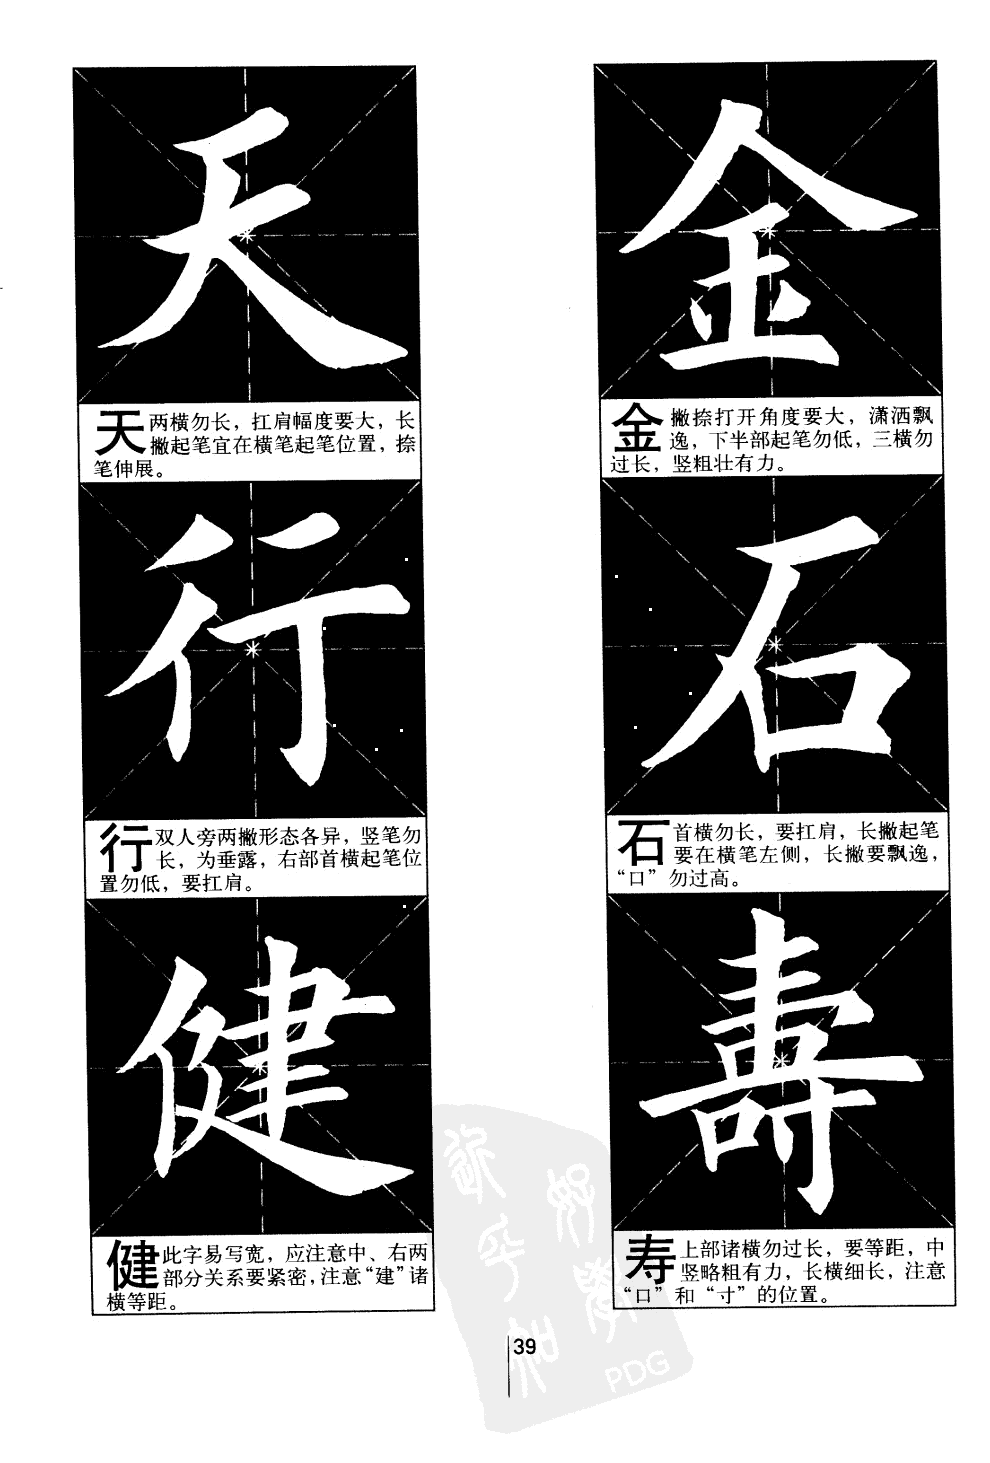 天
天 两横勿长，扛肩幅度要大，长
撇起笔宜在横笔起笔位置，捺
笔伸展。
行
行 双人旁两撇形态各异，竖笔勿
长，为垂露，右部首横起笔位
置勿低，要扛肩。
健
健 此字易写宽，应注意中、右两
部分关系要紧密，注意“建”诸
横等距。
金
金 撇捺打开角度要大，潇洒飘
逸，下半部起笔勿低，三横勿
过长，竖粗壮有力。
石
石 首横勿长，要扛肩，长撇起笔
要在横笔左侧，长撇要飘逸，
“口”勿过高。
壽
寿 上部诸横勿过长，要等距，中
竖略粗有力，长横细长，注意
“口”和“寸”的位置。
39
PDG